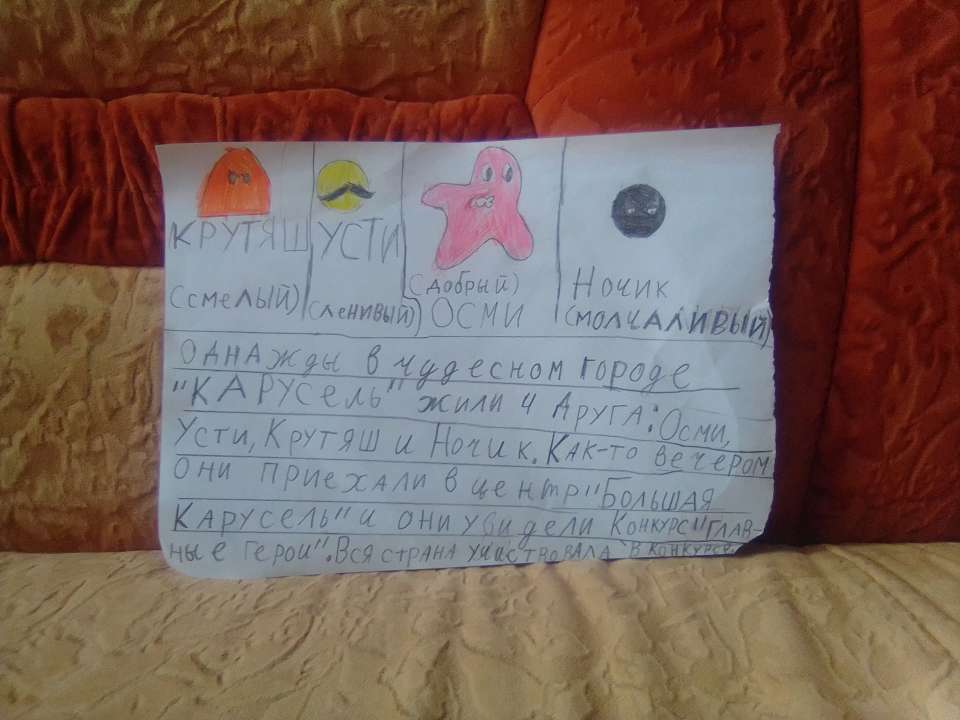 КРУТЯШ
(смелый)
УСТИ
(ленивый)
(добрый)
ОСМИ
Ночик
(молчаливый)
Однажды в чудесном городе
"КАРУСель" жили 4 друга: Осми,
Усти, Крутяш и Ночик. Как-то вечером
они приехали в центр "Большая
Карусель" и они увидели конкурс "глав-
ные герои". Вся страна участвовала в конкурсе.